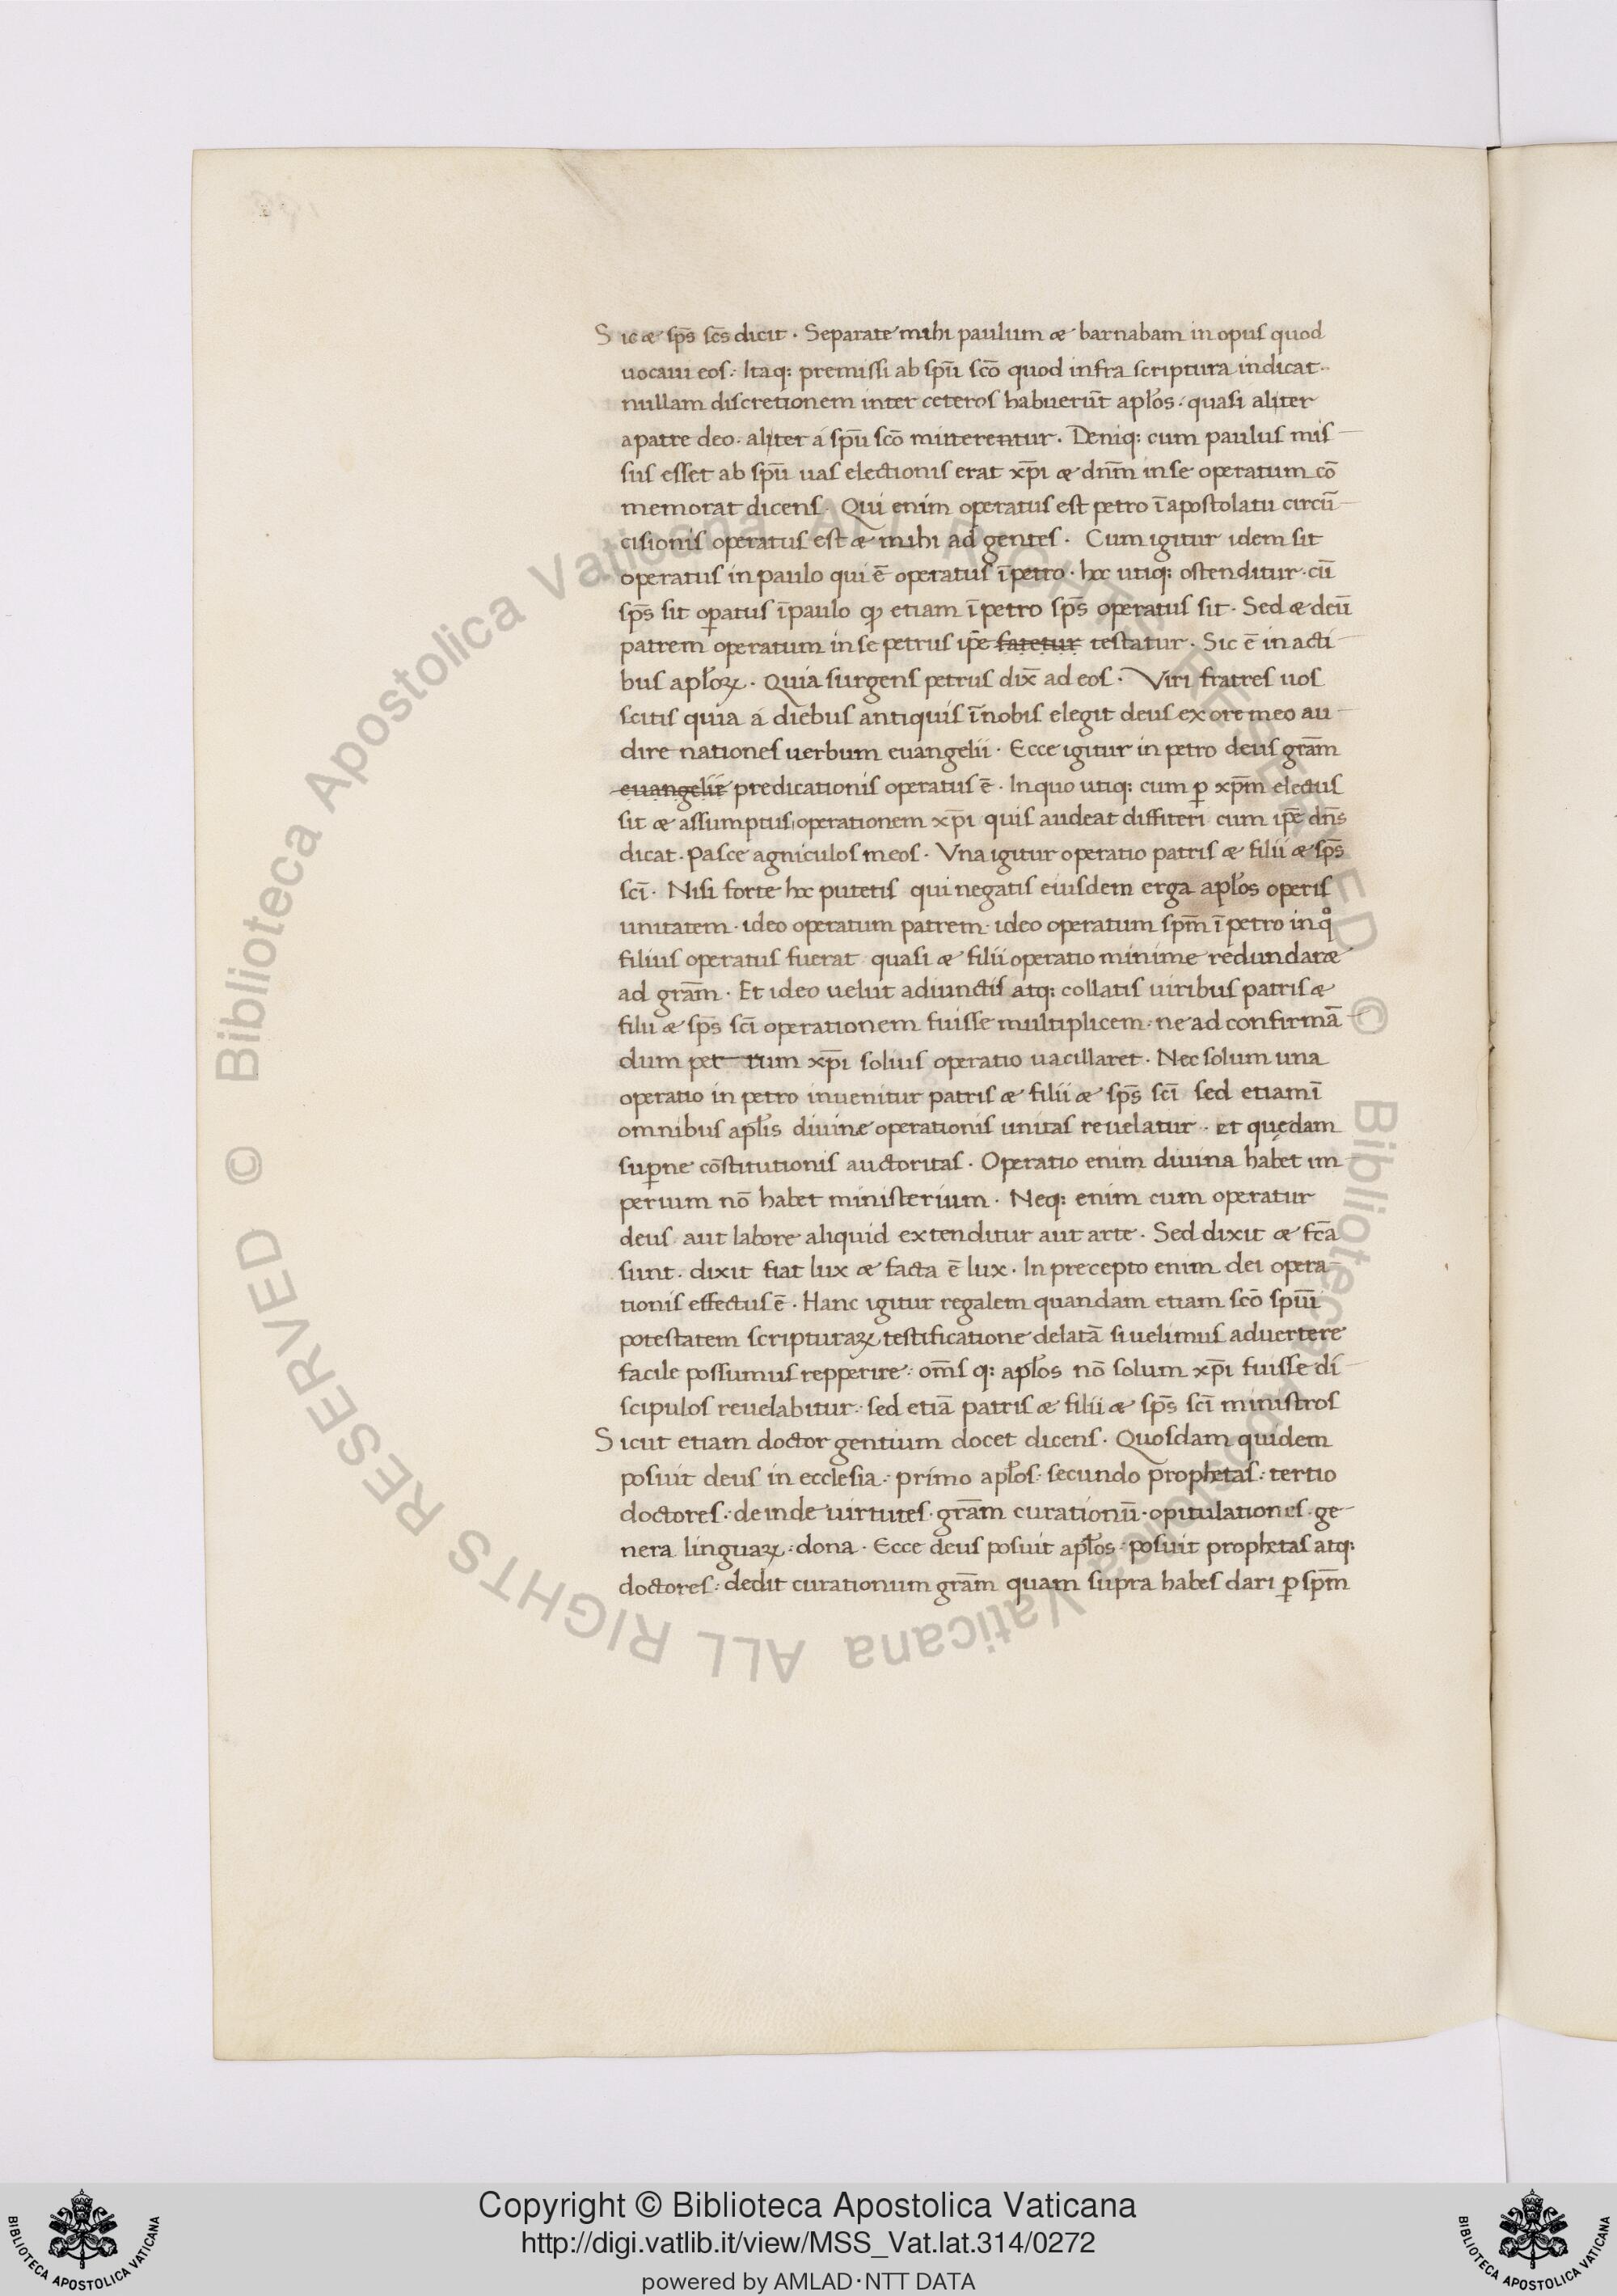 Sic & sp̄s sc̄s dicit · Separate mihi paulum & barnabam in opus quod
uocaui eos : Itaq: premissi ab spū scō quod infra scriptura indicat ·
nullam discretionem inter ceteros habuerūt apl̄os : quasi aliter
apatre deo · aliter á spū scō mitterentur · Deniq: cum paulus mis
sus esset ab spū uas electionis erat xp̄i & dnm̄ inse operatum cō
memorat dicens · Qui enim operatus est petro ī apostolatu circū
cisionis operatus est & mihi ad gentes · Cum igitur idem sit
operatus in paulo qui ē operatus ī petro · hoc utiq: ostenditur · cū
sp̄s sit oꝑatus ī paulo ꝙ etiam ī petro sp̄s operatus sit · Sed & deū
patrem operatum in se petrus ip̄e fatetur testatur · Sic ē in acti
bus apl̄oꝝ · Quia surgens petrus dix̄ ad eos · Viri fratres uos
scitis quia á diebus antiquis ī nobis elegit deus ex ore meo au
dire nationes uerbum euangelii · Ecce igitur in petro deus grām
euangelii predicationis operatus ē · In quo utiq: cum ꝑ xpm̄ electus
sit & assumptus operationem xp̄i quis audeat diffiteri cum ip̄e dn̄s
dicat · Pasce agniculos meos · Vna igitur operatio patris & filii & sp̄s
scī · Nisi forte hoc putetis qui negatis eiusdem erga apl̄os operis
unitatem · ideo operatum patrem · ideo operatum spm̄ ī petro in qͦ
filius operatus fuerat quasi & filii operatio minime redundar&
ad grām · Et ideo uelut adiunctis atq: collatis uiribus patris &
filii & sp̄s scī operationem fuisse multiplicem · ne ad confirmā
dum petrum xp̄i solius operatio uacillaret · Nec solum una
operatio in petro inuenitur patris & filii & sp̄s scī sed etiam ī
omnibus apl̄is diuinę operationis unitas reuelatur · et quędam
suꝑne cōstitutionis auctoritas · Operatio enim diuina habet im
perium nō habet ministerium · Neq: enim cum operatur
deus aut labore aliquid extenditur aut arte · Sed dixit & fcā
sunt · dixit fiat lux & facta ē lux · In precepto enim dei opera
tionis effectus ē · Hanc igitur regalem quandam etiam scō spūi
potestatem scripturaꝝ testificatione delatā si uelimus aduertere
facile possumus repperire · om̄s q: apl̄os nō solum xp̄i fuisse di
scipulos reuelabitur : sed etiā patris & filii & sp̄s scī ministros
Sicut etiam doctor gentium docet dicens · Quosdam quidem
posuit deus in ecclesia : primo apl̄os : secundo prophetas : tertio
doctores : deinde uirtutes · grām curationū · opitulationes · ge
nera linguaꝝ : dona · Ecce deus posuit apl̄os : posuit prophetas atq:
doctores : dedit curationum grām quam supra habes dari ꝑ spm̄
© Biblioteca Apostolica Vaticana ALL RIGHTS RESERVED © Biblioteca Apostolica Vaticana ALL RIGHTS RESERVED
Copyright © Biblioteca Apostolica Vaticana
http://digi.vatlib.it/view/MSS_Vat.lat.314/0272
powered by AMLAD·NTT DATA
BIBLIOTECA APOSTOLICA VATICANA
BIBLIOTECA APOSTOLICA VATICANA